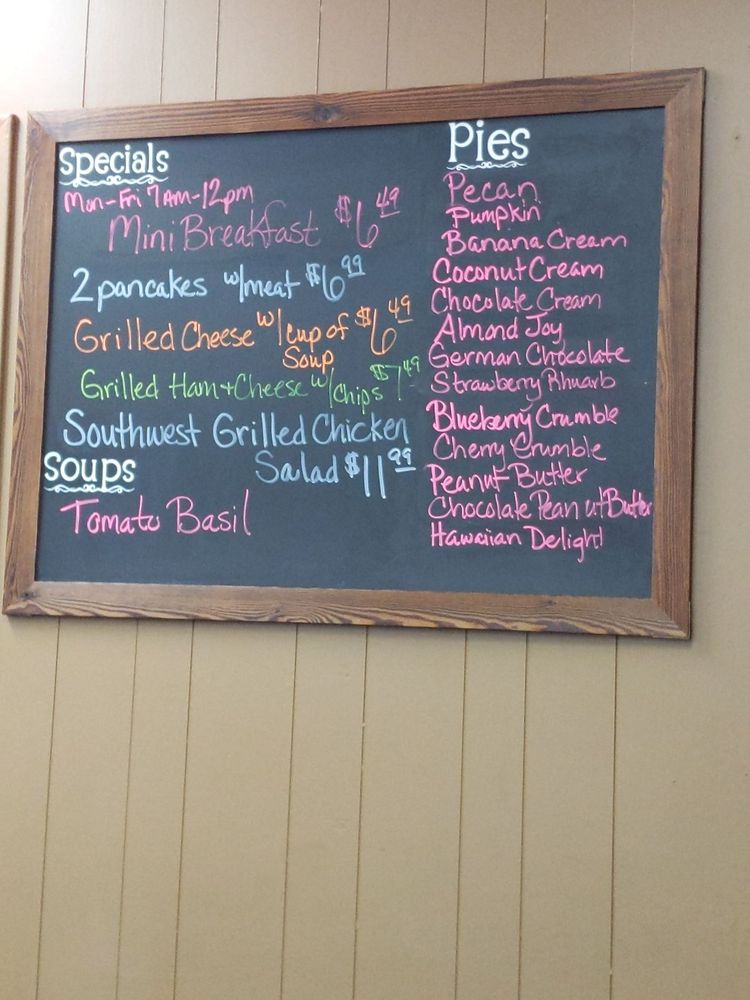 Specials
Mon-Fri 7AM-12pm
Mini Breakfast $6.49
2 pancakes w/meat $6.99
Grilled Cheese w/cup of $6.49
Soup
Grilled Ham+Cheese w/chips $7.49
Southwest Grilled Chicken
Salad $11.99
Soups
Tomato Basil
Pies
Pecan
Pumpkin
Banana Cream
Coconut Cream
Chocolate Cream
Almond Joy
German Chocolate
Strawberry Rhuarb
Blueberry Crumble
Cherry Crumble
Peanut Butter
Chocolate Peanut Butter
Hawaiian Delight